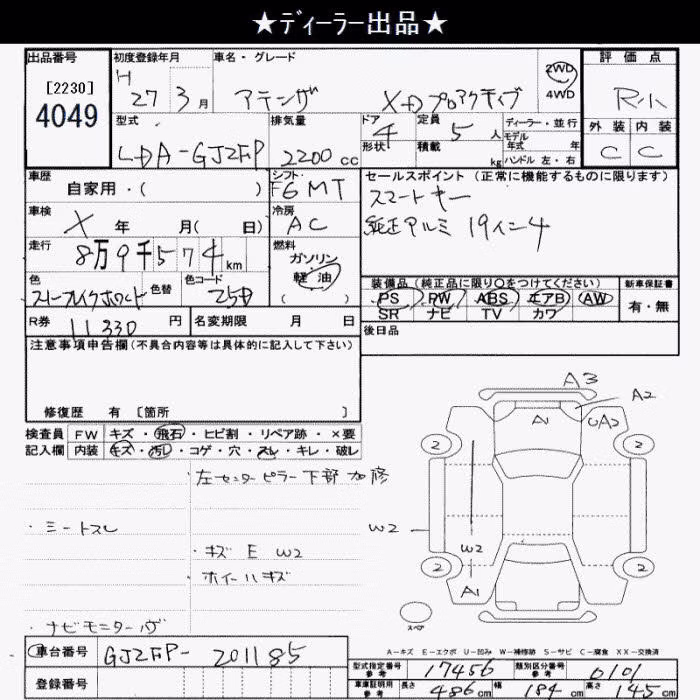 ★ディーラー出品★
出品番号
[2230]
4049
初度登録年月
H 27年 3月
車名・グレード
アテンザ XD プロアクティブ
2WD
4WD
評価点
R小
外装 内装
C C
型式
LDA-GJ2FP
排気量
2200cc
ドア
4
形状
定員
5人
積載
kg
ディーラー・並行
モデル
年式 年
ハンドル 左・右
車歴
自家用・( )
シフト
F6MT
セールスポイント (正常に機能するものに限ります)
スマートキー
純正アルミ 19インチ
車検
X 年 月( 日)
冷房
AC
走行
8万9千574km
燃料
ガソリン
軽油
( )
色
スノーフレイクホワイト
色替
色コード
25D
装備品(純正品に限り○をつけてください)
PS PW ABS エアB AW
SR ナビ TV カワ
新車保証書
有・無
R券
11330円
名変期限 月 日
後日品
注意事項申告欄(不具合内容等は具体的に記入して下さい)
修復歴 有 [箇所 ]
検査員 FW キズ・飛石・ヒビ割・リペア跡・×要
記入欄 内装 キズ・汚レ・コゲ・穴・スレ・キレ・破レ
・左センターピラー下部 加修
・シートスレ
・キズ E W2
・ホイールキズ
・ナビモニターハゲ
A3
A2
A1
UA2
2
2
W2
W2
2
2
A1
スペア
A-キズ E-エクボ U-凹み W-補修跡 S-サビ C-腐食 XX-交換済
車台番号
GJ2FP-201185
登録番号
型式指定番号
参考
17456
類別区分番号
参考
0101
車庫証明用
参考
長さ 486cm 幅 184cm 高さ 145cm